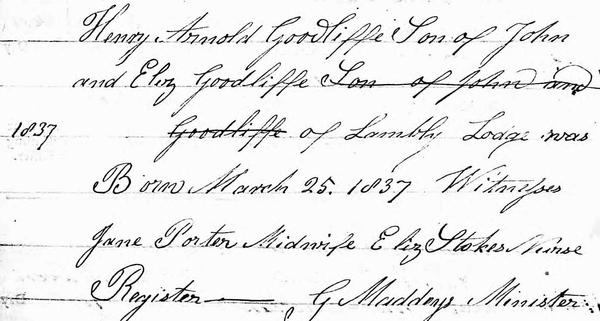 Henry Arnold Goodliffe Son of John
and Eliz Goodliffe Son of John and
1837 Goodliffe of Lambly Lodge was
Born March 25. 1837 Witnesses
Jane Porter Midwife Eliz Stokes Nurse
Register — G Maddeys Minister